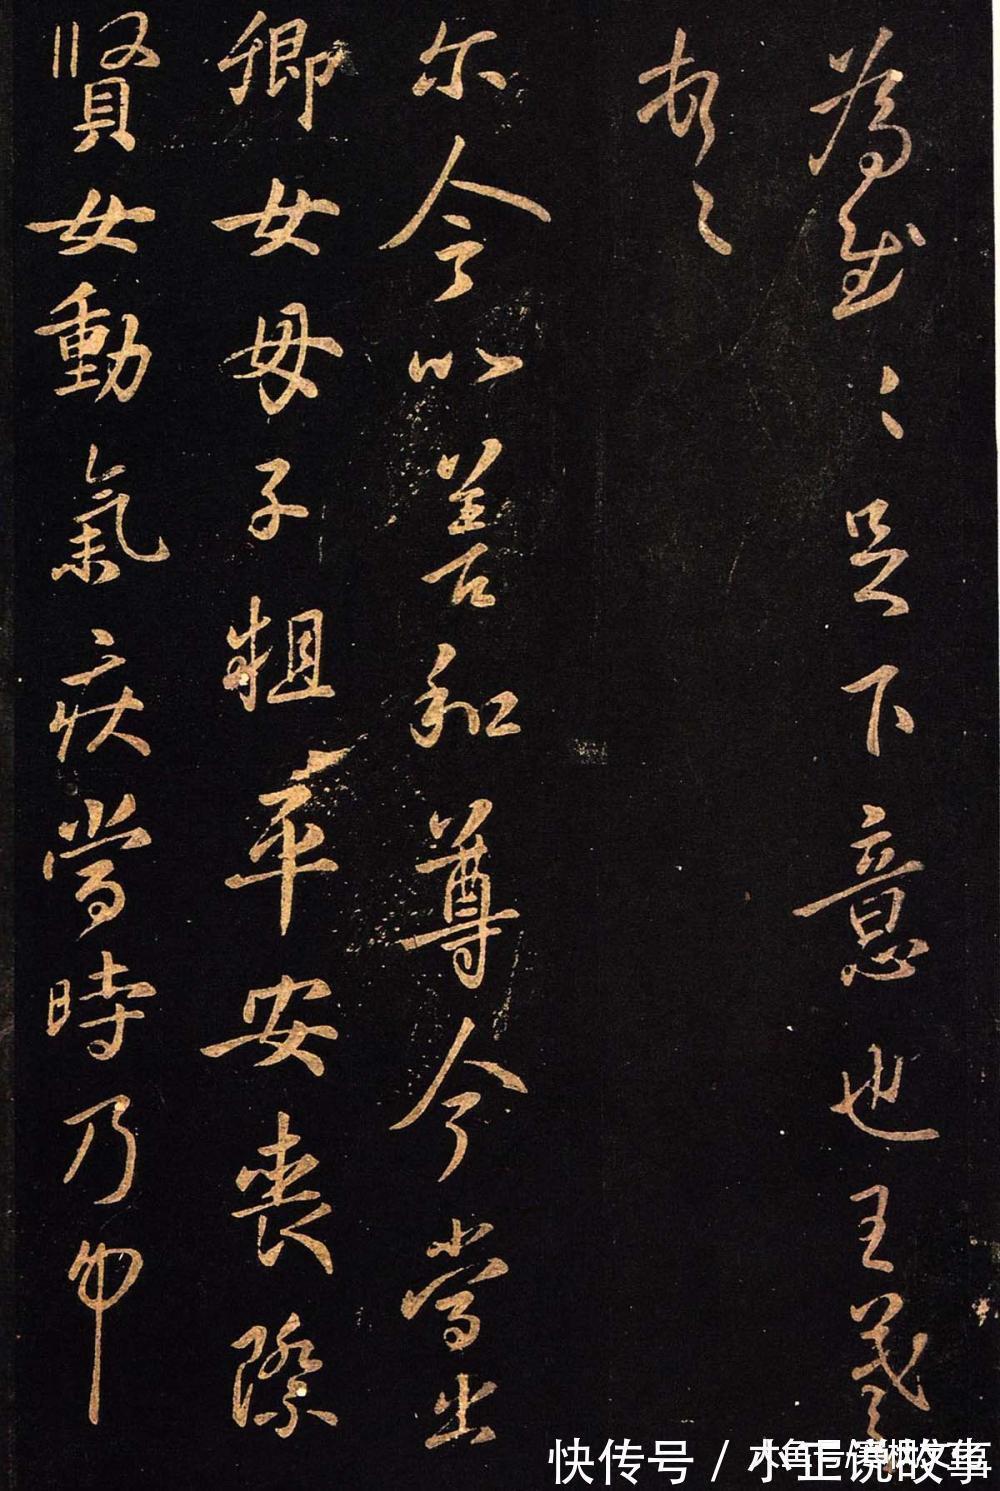 為慰〻足下意也王羲之
尔今以善和尊今當出
卿女母子粗平安喪際
賢女動氣疾當時乃
快传号 / 小正说故事